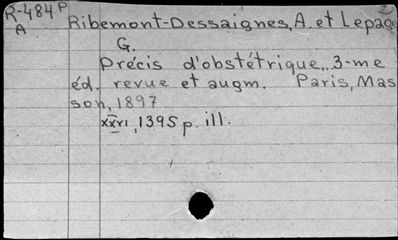 R-484 P
A
Ribemont-Dessaignes, A. et Lepage
G.
Précis d'obstétrique, 3-me
éd. revue et augm. Paris, Mas
son, 1897
xxvi, 1395 p. ill.